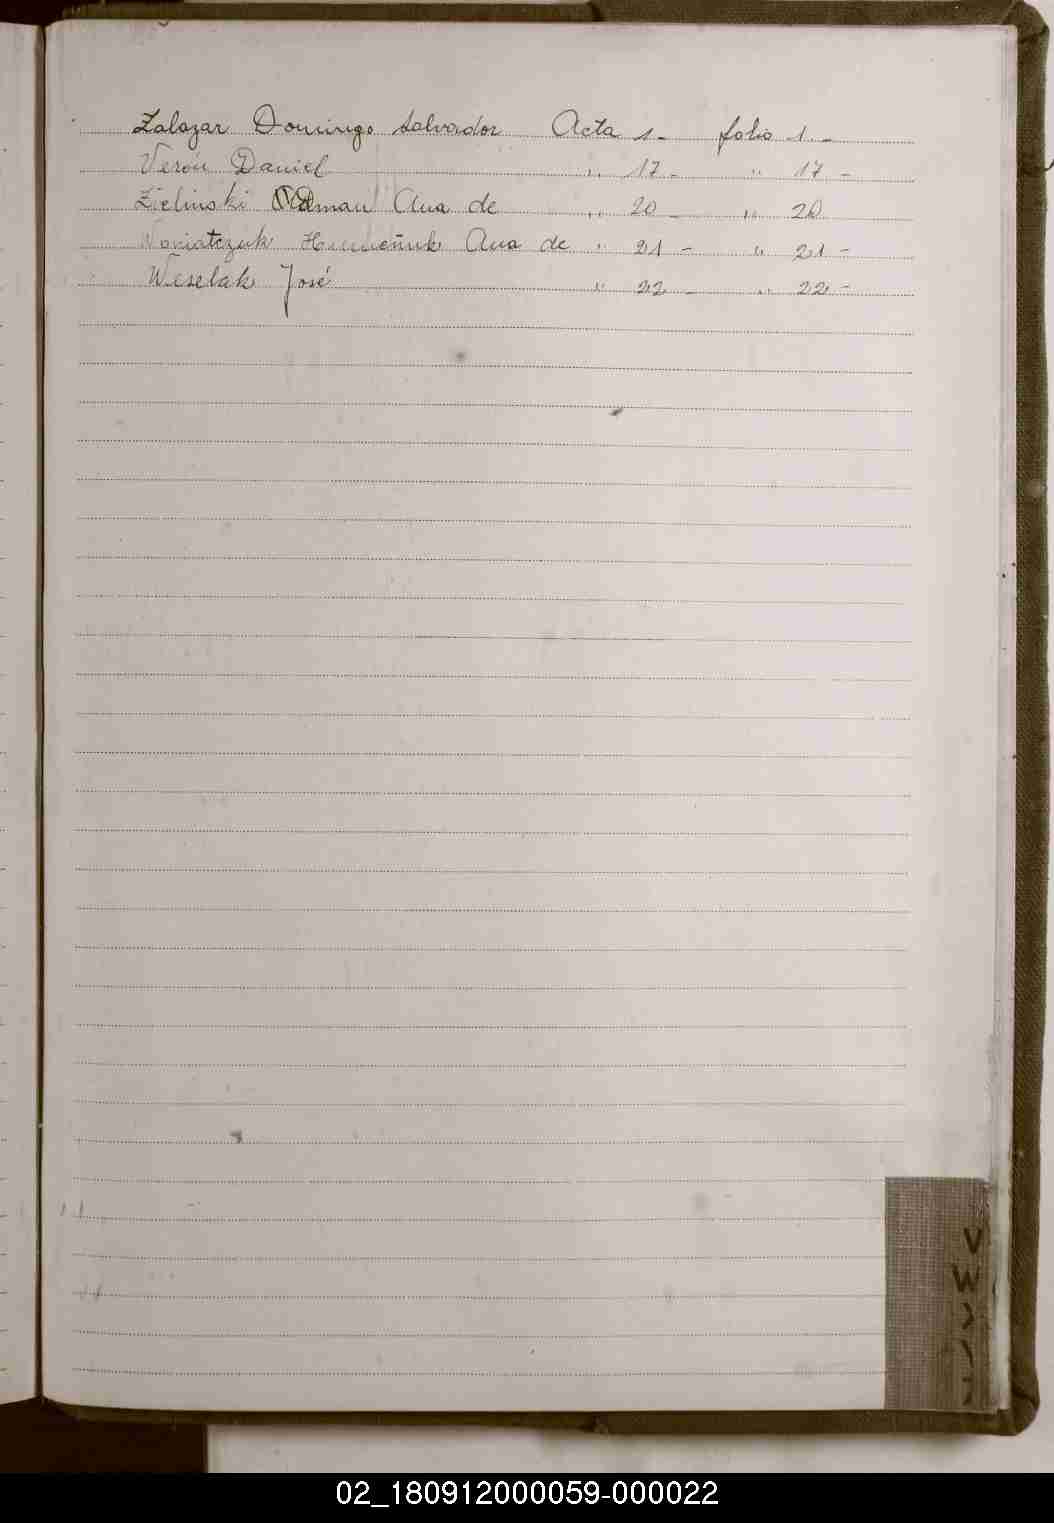 Zalazar Domingo Salvador Acta 1 - folio 1 -
Verón Daniel " 17 - " 17 -
Zielinski Ana de " 20 - " 20
Ana de " 21 - " 21 -
Weselak José " 22 - " 22 -
V
W
02_180912000059-000022